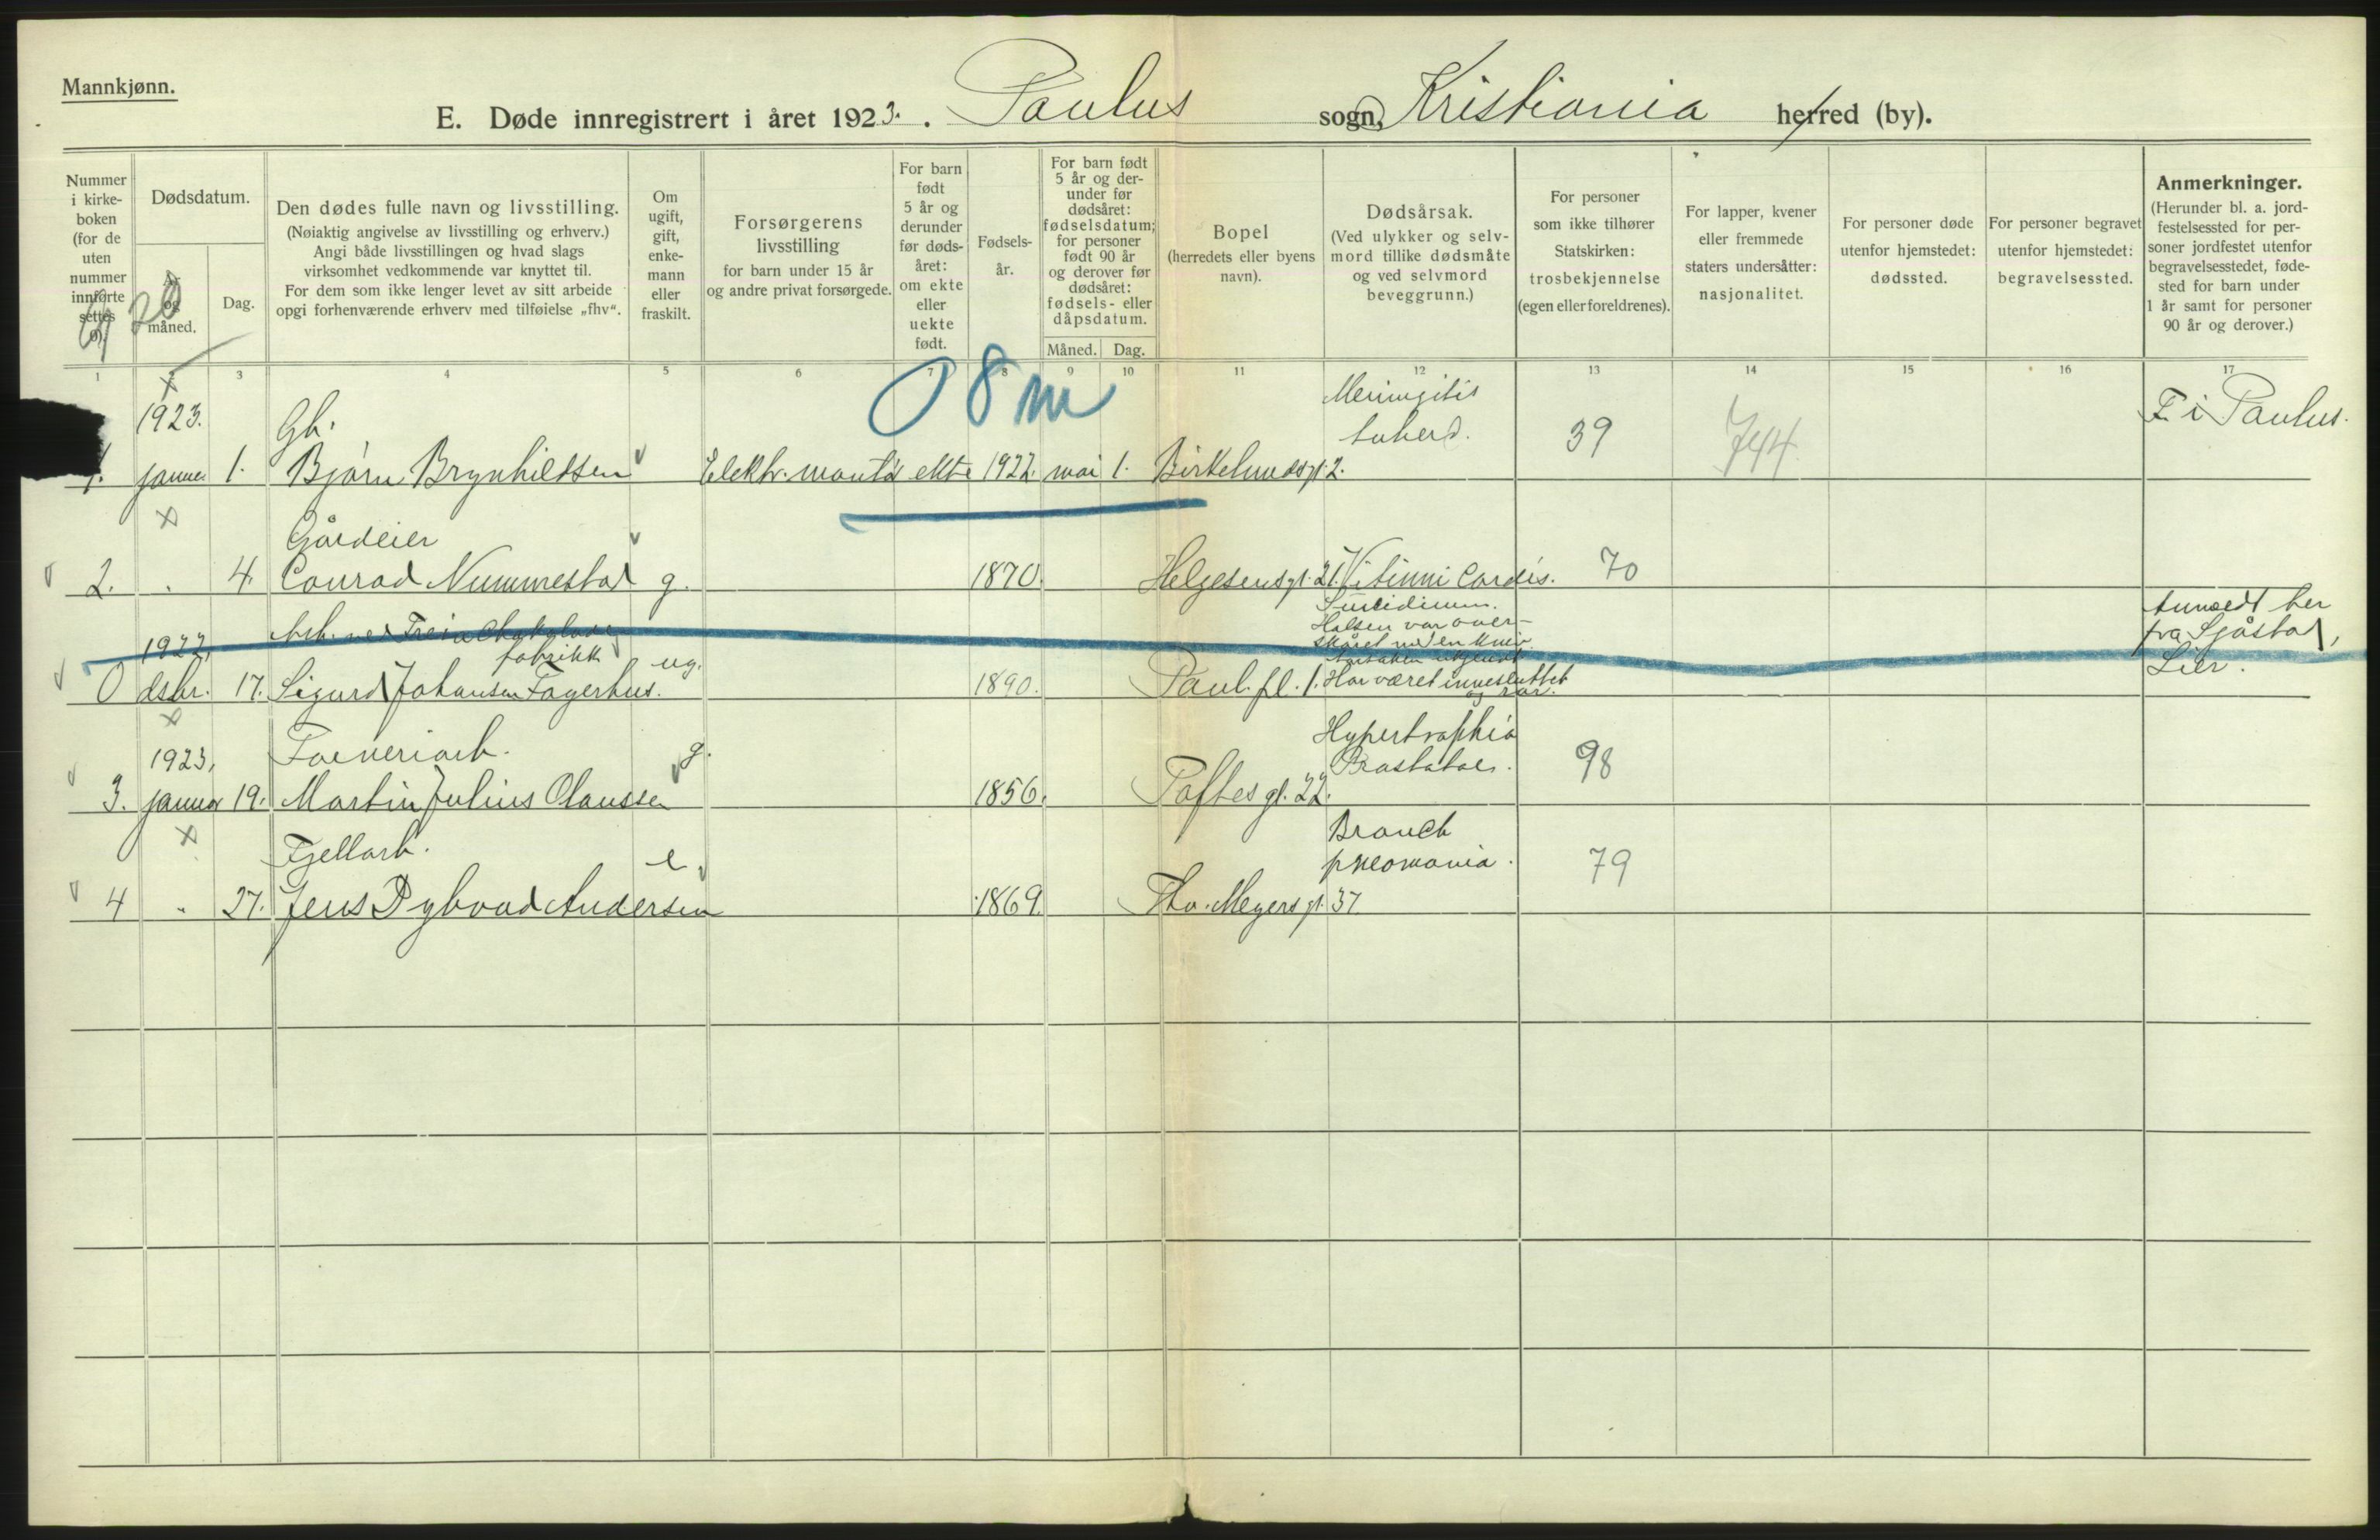 Mannkjønn.
E. Døde innregistrert i året 1923. Paulus sogn, Kristiania herred (by).
Nummer i kirkeboken (for de uten nummer innførte settes 0).
Dødsdatum.
År og måned.
Dag.
Den dødes fulle navn og livsstilling.
(Nøiaktig angivelse av livsstilling og erhverv.)
Angi både livsstillingen og hvad slags
virksomhet vedkommende var knyttet til.
For dem som ikke lenger levet av sitt arbeide
opgi forhenværende erhverv med tilføielse „fhv“.
Om ugift, gift, enkemann eller fraskilt.
Forsørgerens livsstilling
for barn under 15 år
og andre privat forsørgede.
For barn født 5 år og derunder før dødsåret: om ekte eller uekte født.
Fødselsår.
For barn født 5 år og derunder før dødsåret: fødselsdatum; for personer født 90 år og derover før dødsåret: fødsels- eller dåpsdatum.
Måned. Dag.
Bopel
(herredets eller byens navn).
Dødsårsak.
(Ved ulykker og selvmord tillike dødsmåte og ved selvmord beveggrunn.)
For personer som ikke tilhører Statskirken: trosbekjennelse (egen eller foreldrenes).
For lapper, kvener eller fremmede staters undersåtter: nasjonalitet.
For personer døde utenfor hjemstedet: dødssted.
For personer begravet utenfor hjemstedet: begravelsessted.
Anmerkninger.
(Herunder bl. a. jordfestelsessted for personer jordfestet utenfor begravelsesstedet, fødested for barn under 1 år samt for personer 90 år og derover.)
1 2 3 4 5 6 7 8 9 10 11 12 13 14 15 16 17
08 m
1923. Gb. Meningitis F. i Paulus.
tuberd. 39 744
1. januar 1. Bjørn Brynhildsen Elektr. montør ekte 1922. mai 1. Birkelundsgt. 2.
Gårdeier
2. " 4. Conrad Nummestad g. 1870. Helgesensgt. 21. Vitinni Cordis. 70
1922, Arb. ved Freia Chokolade fabrikk ug.
Suicidium. Halsen var overskåret med en kniv. Årsaken ukjendt
Anmeldt her fra Sjåstad, Lier.
0 dsbr. 17. Sigurd Johansen Fagerhus. 1890. Paul. pl. 1. Har været innesluttet og rar.
1923, Farveriarb. g. Hypertrophia Prostatae. 98
3. januar 19. Martin Julius Olaussen 1856. Toftes gt. 22.
Fjellarb. e. Bronch pneomonia. 79
4 " 27. Jens Dybvad Andersen 1869. Thv. Meyers gt. 37